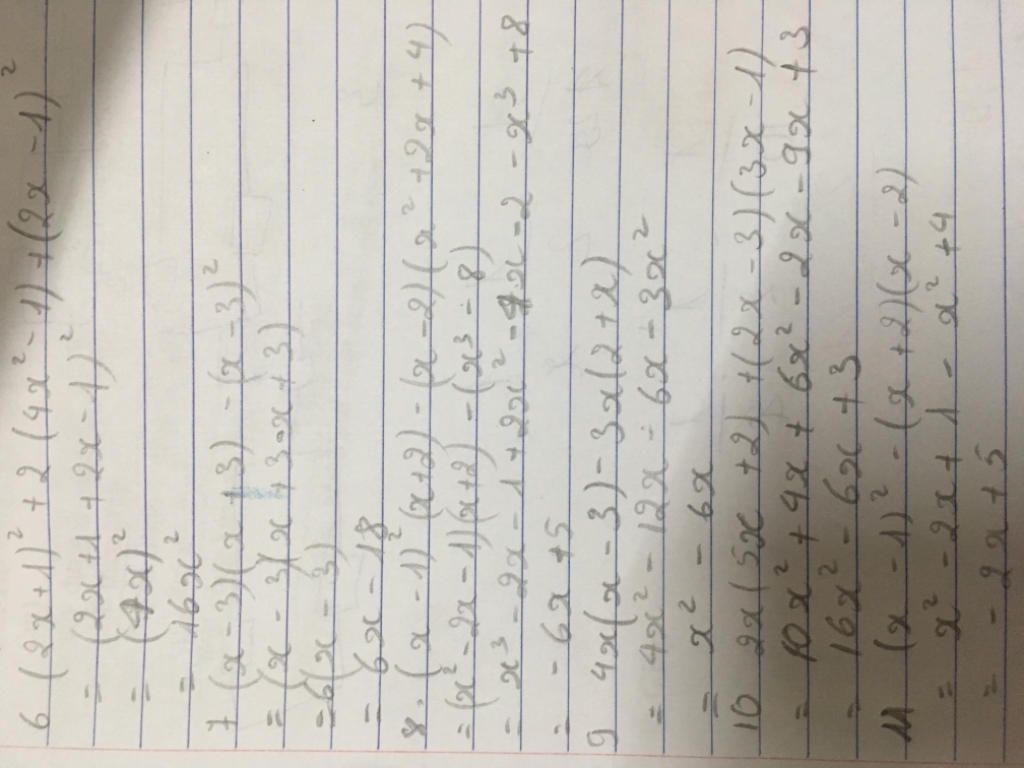 6 (2x+1)² + 2 (4x² - 1) + (2x - 1)²
= (2x+1 + 2x - 1)²
= (4x)²
= 16x²
7 (x - 3)(x + 3) - (x - 3)²
= (x - 3)(x + 3 - x + 3)
= 6(x - 3)
= 6x - 18
8. (x - 1)² (x + 2) - (x - 2)(x² + 2x + 4)
= (x² - 2x - 1)(x + 2) - (x³ - 8)
= x³ - 2x - 1 + 2x² - 4x - 2 - x³ + 8
= - 6x + 5
9 4x(x - 3) - 3x(2 + x)
= 4x² - 12x - 6x - 3x²
= x² - 6x
10 2x(5x + 2) + (2x - 3)(3x - 1)
= 10x² + 4x + 6x² - 2x - 9x + 3
= 16x² - 6x + 3
11 (x - 1)² - (x + 2)(x - 2)
= x² - 2x + 1 - x² + 4
= - 2x + 5